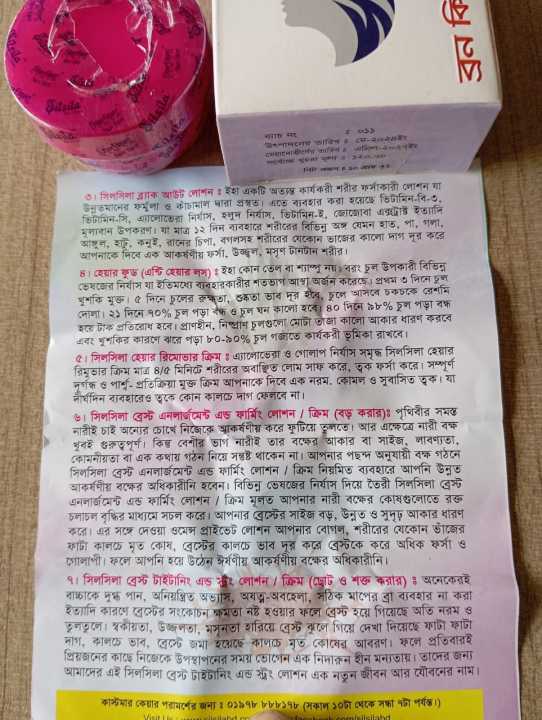 Silsila
Silsila
ব্রন কি
ব্যাচ নং : ০১১
উৎপাদনের তারিখ : মে-২০২৪ইং
৩। সিলসিলা ব্ল্যাক আউট লোশন : ইহা একটি অত্যন্ত কার্যকরী শরীর ফর্সাকারী লোশন যা
উন্নতমানের ফর্মুলা ও কাঁচামাল দ্বারা প্রস্তুত। এতে ব্যবহার করা হয়েছে ভিটামিন-বি-৩,
ভিটামিন-সি, এ্যালোভেরা নির্যাস, হলুদ নির্যাস, ভিটামিন-ই, জোজোবা এক্সট্রাক্ট ইত্যাদি
মূল্যবান উপকরণ। যা মাত্র ১২ দিন ব্যবহারে শরীরের বিভিন্ন অঙ্গ যেমন হাত, পা, গলা,
আঙ্গুল, হাটু, কনুই, রানের চিপা, বগলসহ শরীরের যেকোন ভাজের কালো দাগ দূর করে
আপনাকে দিবে এক আকর্ষণীয় ফর্সা, উজ্জ্বল, মসৃণ টানটান শরীর।
৪। হেয়ার ফুড (এন্টি হেয়ার লস) : ইহা কোন তেল বা শ্যাম্পু নয়। বরং চুল উপকারী বিভিন্ন
ভেষজের নির্যাস যা ইতিমধ্যে ব্যবহারকারীর শতভাগ আস্থা অর্জন করেছে। প্রথম ৩ দিনে চুল
খুশকি মুক্ত। ৫ দিনে চুলের রুক্ষতা, শুষ্কতা ভাব দূর হবে, চুলে আসবে চকচকে রেশমি
দোলা। ২১ দিনে ৭০% চুল পড়া বন্ধ ও চুল ঘন কালো হবে। ৪০ দিনে ৯৮% চুল পড়া বন্ধ
হয়ে টাক প্রতিরোধ হবে। প্রাণহীন, নিষ্প্রাণ চুলগুলো মোটা তাজা কালো আকার ধারণ করবে
এবং খুশকির কারণে ঝরে পড়া ৮০-৯০% চুল গজাতে কার্যকরী ভূমিকা রাখবে।
৫। সিলসিলা হেয়ার রিমোভার ক্রিম : এ্যালোভেরা ও গোলাপ নির্যাস সমৃদ্ধ সিলসিলা হেয়ার
রিমুভার ক্রিম মাত্র ৪/৫ মিনিটে শরীরের অবাঞ্ছিত লোম সাফ করে, ত্বক ফর্সা করে। সম্পূর্ণ
দূর্গন্ধ ও পার্শ্ব- প্রতিক্রিয়া মুক্ত ক্রিম আপনাকে দিবে এক নরম, কোমল ও সুবাসিত ত্বক। যা
দীর্ঘদিন ব্যবহারেও ত্বকে কোন কালচে দাগ ফেলবে না।
৬। সিলসিলা ব্রেস্ট এনলার্জমেন্ট এন্ড ফার্মিং লোশন / ক্রিম (বড় করার)ঃ পৃথিবীর সমস্ত
নারীই চাই অন্যের চোখে নিজেকে আকর্ষণীয় করে ফুটিয়ে তুলতে। আর এক্ষেত্রে নারী বক্ষ
খুবই গুরুত্বপূর্ণ। কিন্তু বেশীর ভাগ নারীই তার বক্ষের আকার বা সাইজ, লাবণ্যতা,
কোমনীয়তা বা এক কথায় গঠন নিয়ে সন্তুষ্ট থাকেন না। আপনার পছন্দ অনুযায়ী বক্ষ গঠনে
সিলসিলা ব্রেস্ট এনলার্জমেন্ট এন্ড ফার্মিং লোশন / ক্রিম নিয়মিত ব্যবহারে আপনি উন্নত
আকর্ষণীয় বক্ষের অধিকারীনি হবেন। বিভিন্ন ভেষজের নির্যাস দিয়ে তৈরী সিলসিলা ব্রেস্ট
এনলার্জমেন্ট এন্ড ফার্মিং লোশন / ক্রিম মূলত আপনার নারী বক্ষের কোষগুলোতে রক্ত
চলাচল বৃদ্ধির মাধ্যমে সচল করে। আপনার ব্রেস্টের সাইজ বড়, উন্নত ও সুদৃঢ় আকার ধারণ
করে। এর সঙ্গে দেওয়া ওমেন্স প্রাইভেট লোশন আপনার বোগল, শরীরের যেকোন ভাঁজের
ফাটা কালচে মৃত কোষ, ব্রেস্টের কালচে ভাব দূর করে ব্রেস্টকে করে অধিক ফর্সা ও
গোলাপী। ফলে আপনি হয়ে উঠেন ঈর্ষণীয় আকর্ষণীয় বক্ষের অধিকারীনি।
৭। সিলসিলা ব্রেস্ট টাইটানিং এন্ড স্ট্রং লোশন / ক্রিম (ছোট ও শক্ত করার) : অনেকেরই
বাচ্চাকে দুগ্ধ পান, অনিয়ন্ত্রিত অভ্যাস, অযত্ন-অবহেলা, সঠিক মাপের ব্রা ব্যবহার না করা
ইত্যাদি কারণে ব্রেস্টের সংকোচন ক্ষমতা নষ্ট হওয়ার ফলে ব্রেস্ট হয়ে গিয়েছে অতি নরম ও
তুলতুলে। স্বকীয়তা, উজ্জলতা, মসৃনতা হারিয়ে ব্রেস্ট ঝুলে গিয়ে দেখা দিয়েছে ফাটা ফাটা
দাগ, কালচে ভাব, ব্রেস্টে জমা হয়েছে কালচে মৃত কোষের আবরণ। ফলে প্রতিবারই
প্রিয়জনের কাছে নিজেকে উপস্থাপনের সময় ভোগেন এক নিদারুন হীন মন্যতায়। তাদের জন্য
আমাদের এই সিলসিলা ব্রেস্ট টাইটানিং এন্ড স্ট্রং লোশন এক নতুন জীবন আর যৌবনের নাম।
কাস্টমার কেয়ার পরামর্শের জন্য : ০১৯৭৮ ৮৮৮১৭৮ (সকাল ১০টা থেকে সন্ধা ৭টা পর্যন্ত।)